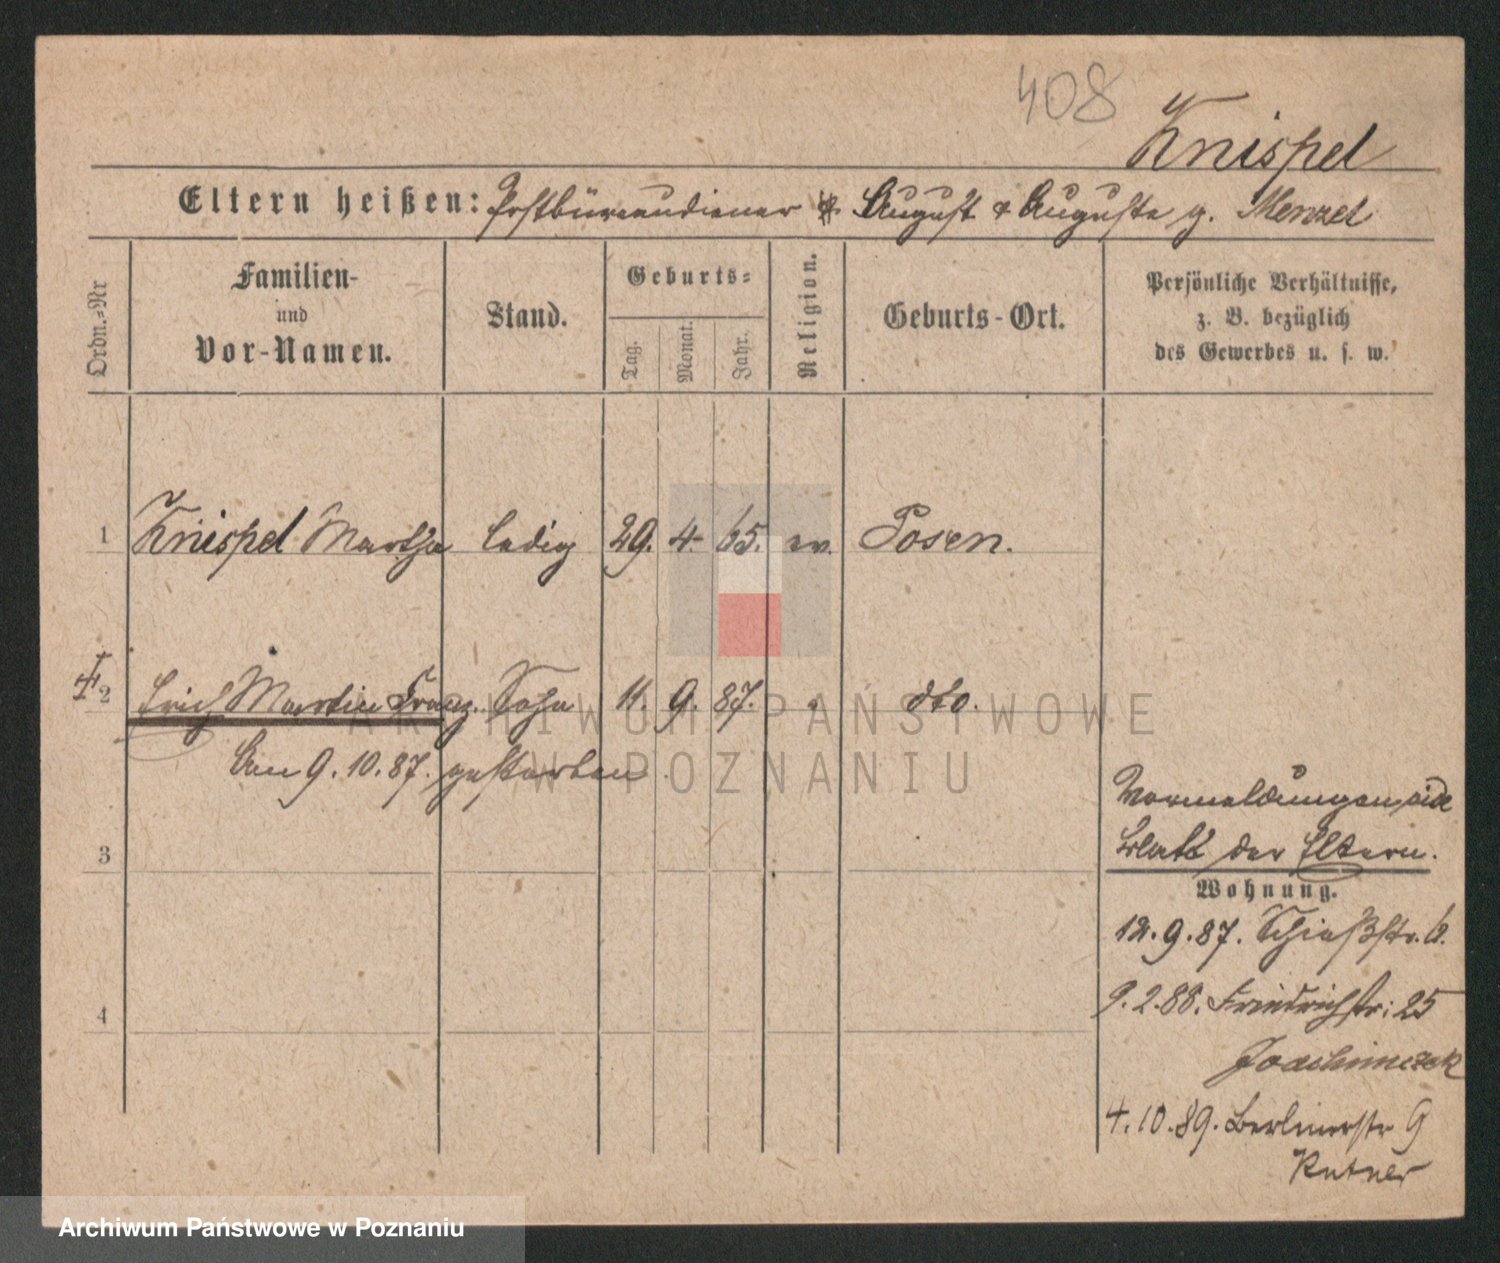 408
Knispel
Eltern heißen: Postbüreaudiener August & Auguste g. Menzel
Ordn.=Nr
Familien-
und
Vor-Namen.
Stand.
Geburts=
Tag.
Monat.
Jahr.
Religion.
Geburts-Ort.
Persönliche Verhältnisse,
z. B. bezüglich
des Gewerbes u. s. w.
1 Knispel Martha ledig 29. 4. 65. ev. Posen.
2 Erich Martin Franz. Sohn 11. 9. 87. " dto.
ARCHIWUM PAŃSTWOWE
W POZNANIU
Am 9.10.87. gestorben
Vormeldungen
Blatt der Eltern.
3
Wohnung.
12.9.87. Schießstr. 6.
9.2.88. Friedrichstr: 25
4
Joachimczak
4.10.89. Berlinerstr 9
Rutner
Archiwum Państwowe w Poznaniu